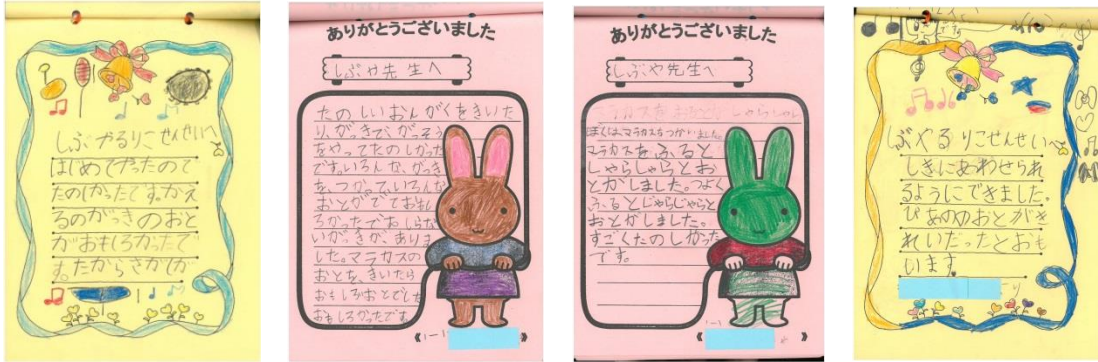 しぶやるりこせんせいへ
はじめてやったので
たのしかったです。かえ
るのがっきのおと
がおもしろかったで
す。たからさがしが
ありがとうございました
しぶや先生へ
たのしいおんがくをきいた
り、がっきで、がっそう
をやってたのしかった
です。いろんな、がっき
を、つかって、いろんな
おとがでておもし
ろかったです。しらな
いがっきが、ありま
した。マラカスの
おとを、きいたら
おもしろいおとでした
おもしろかったです
1-1
ありがとうございました
しぶや先生へ
ぼくは、マラカスをつかいました。
マラカスをふると
しゃらしゃらとお
とがしました。つよく
ふるとじゃらじゃらと
おとがしました。
すごくたのしかった
です。
1-1
しぶやるりこせんせいへ
しきにあわせられ
るようにできました。
ぴあののおとがき
れいだったとおも
います。